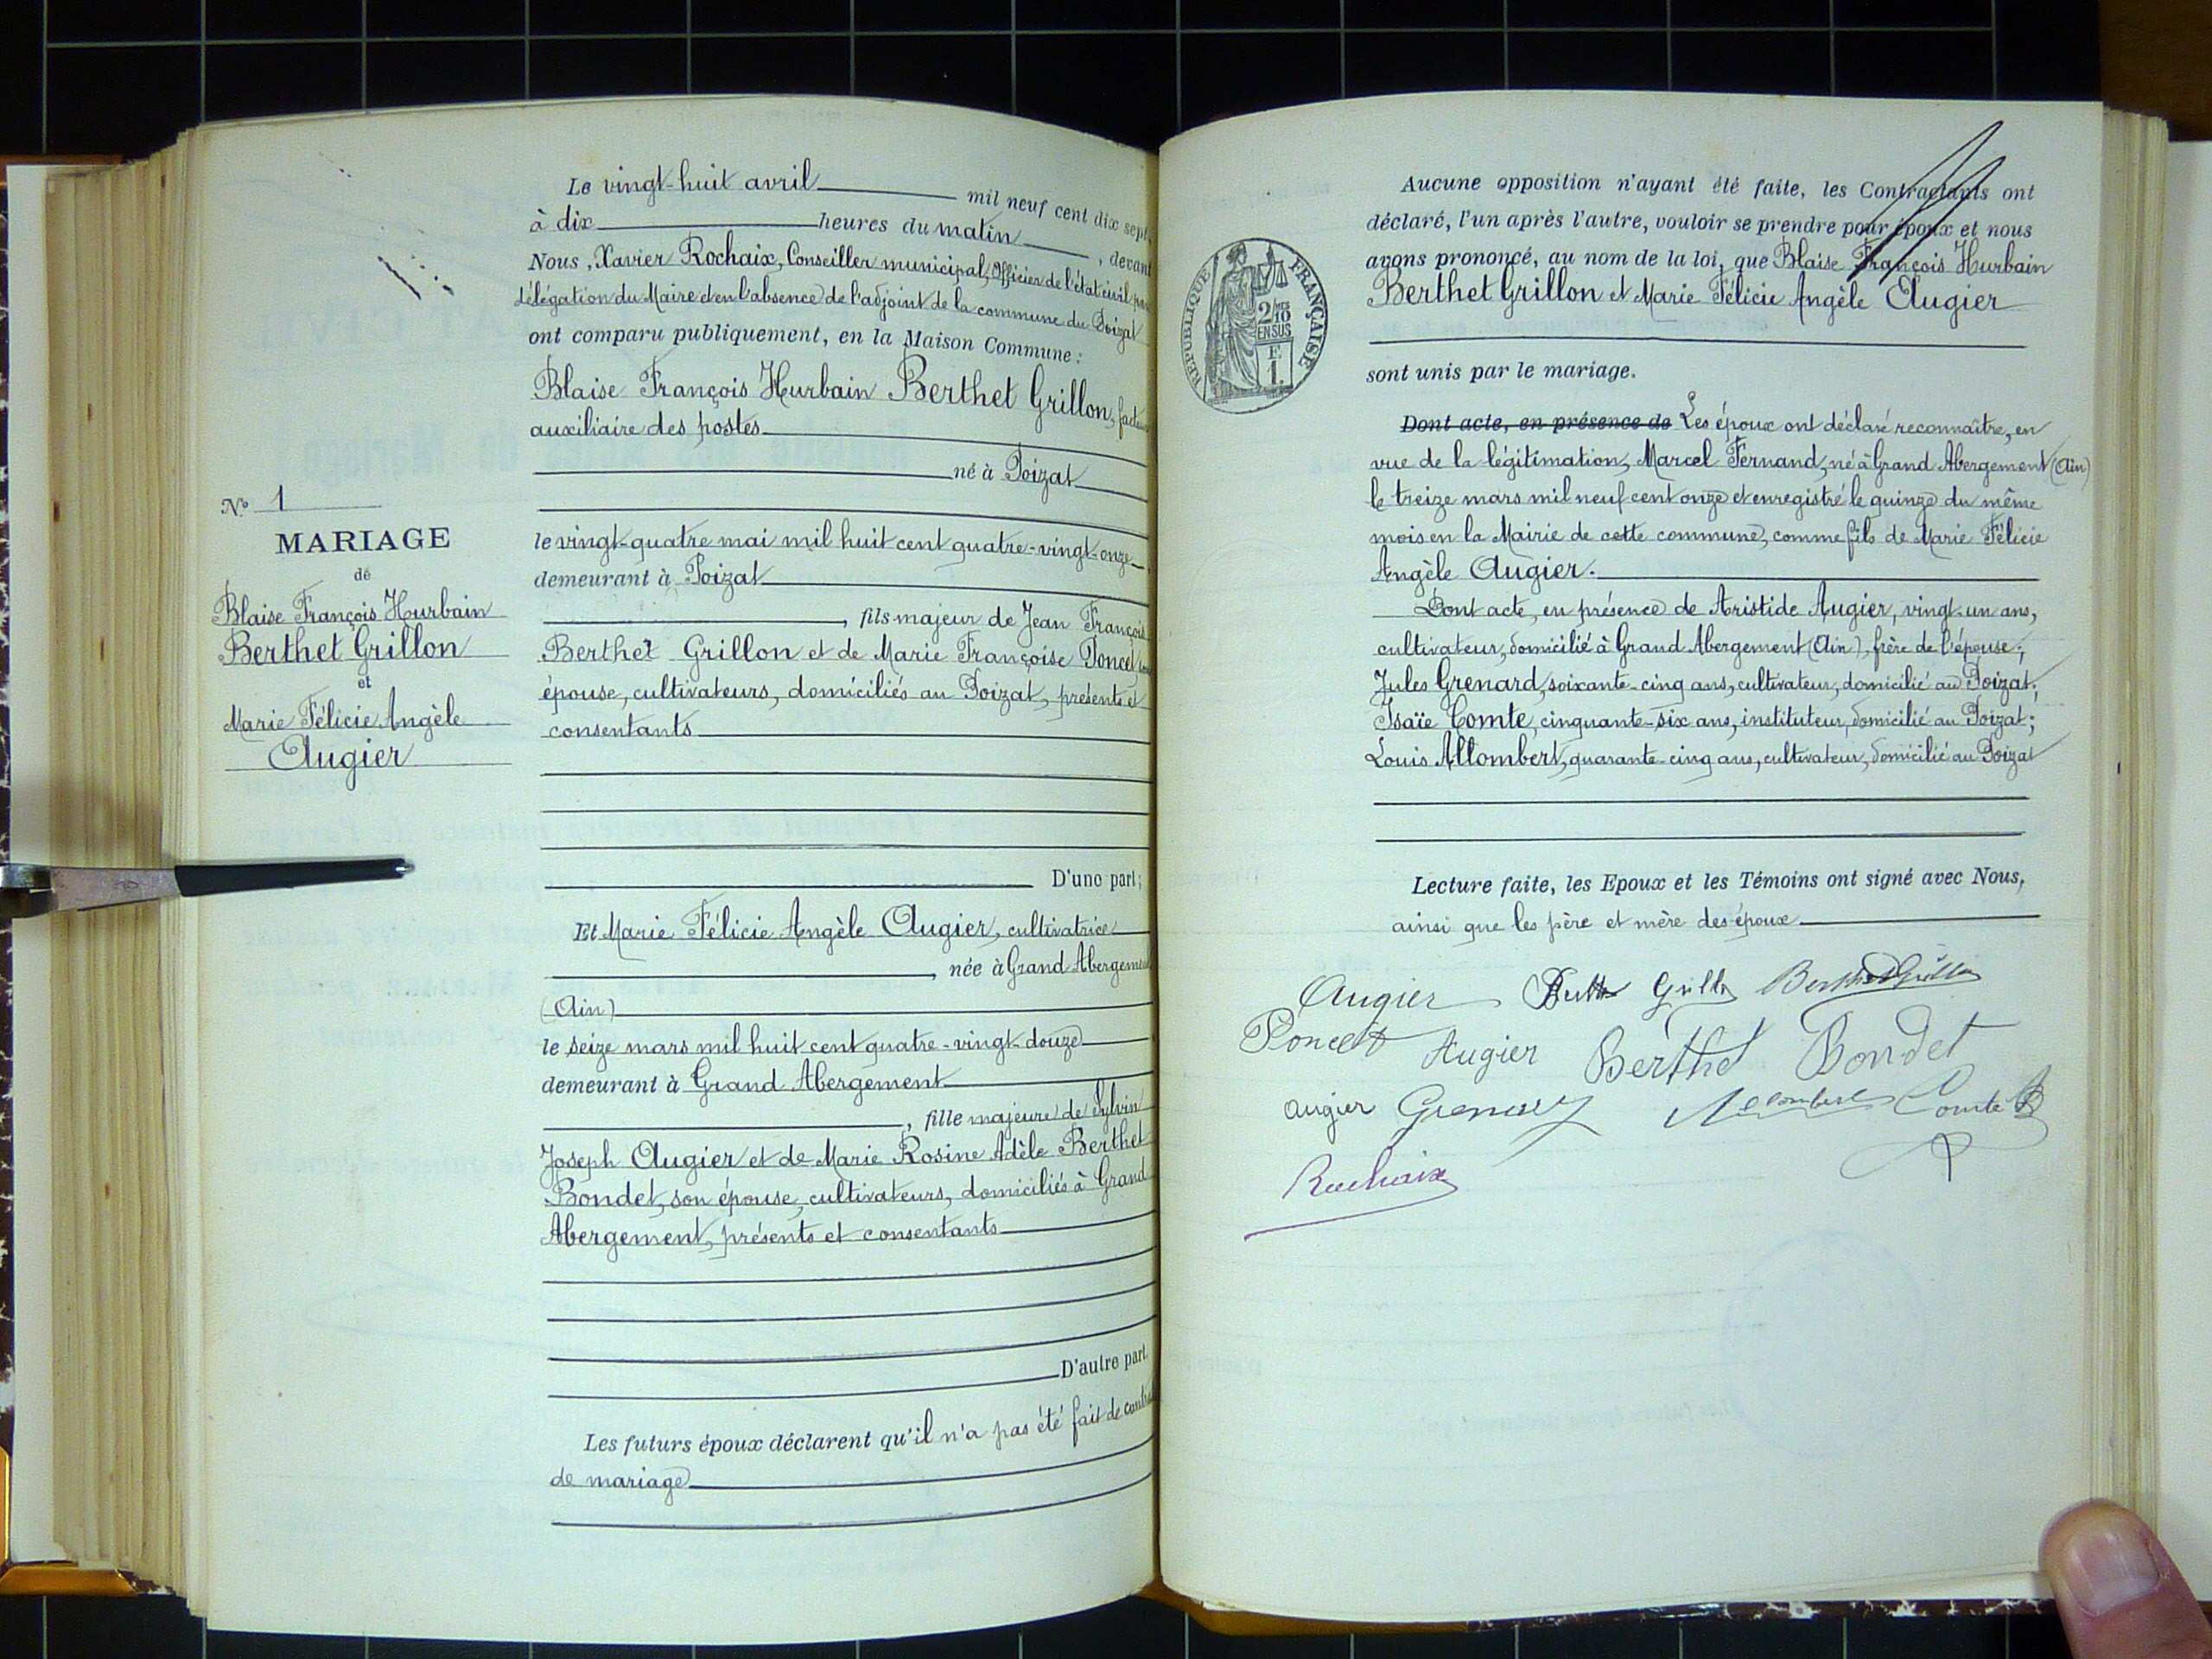 Nº 1
MARIAGE
de
Blaise François Hurbain
Berthet Grillon
et
Marie Félicie Angèle
Augier
Le vingt-huit avril mil neuf cent dix sept,
à dix heures du matin, devant
Nous, Xavier Rochaix, Conseiller municipal, Officier de l'état civil par
délégation du Maire et en l'absence de l'adjoint de la commune du Poizat
ont comparu publiquement, en la Maison Commune :
Blaise François Hurbain Berthet Grillon, facteur
auxiliaire des postes
né à Poizat
le vingt-quatre mai mil huit cent quatre-vingt-onze
demeurant à Poizat
, fils majeur de Jean François
Berthet Grillon et de Marie Françoise Poncet,
épouse, cultivateurs, domiciliés au Poizat, présents et
consentants
D'une part;
Et Marie Félicie Angèle Augier, cultivatrice
, née à Grand Abergement
(Ain)
le seize mars mil huit cent quatre-vingt-douze
demeurant à Grand Abergement
, fille majeure de Sylvin
Joseph Augier et de Marie Rosine Adèle Berthet
Bondet, son épouse, cultivateurs, domiciliés à Grand
Abergement, présents et consentants
D'autre part.
Les futurs époux déclarent qu'il n'a pas été fait de contrat
de mariage
RÉPUBLIQUE FRANÇAISE
2/10
EN SUS
F.
1.
Aucune opposition n'ayant été faite, les Contractants ont
déclaré, l'un après l'autre, vouloir se prendre pour époux et nous
avons prononcé, au nom de la loi, que Blaise François Hurbain
Berthet Grillon et Marie Félicie Angèle Augier
sont unis par le mariage.
Dont acte, en présence de Les époux ont déclaré reconnaître, en
vue de la légitimation, Marcel Fernand, né à Grand Abergement (Ain)
le treize mars mil neuf cent onze et enregistré le quinze du même
mois en la Mairie de cette commune, comme fils de Marie Félicie
Angèle Augier.
Dont acte, en présence de Aristide Augier, vingt-un ans,
cultivateur, domicilié à Grand Abergement (Ain), frère de l'épouse;
Jules Grenard, soixante-cinq ans, cultivateur, domicilié au Poizat;
Isaïe Comte, cinquante-six ans, instituteur, domicilié au Poizat;
Louis Allombert, quarante-cinq ans, cultivateur, domicilié au Poizat
Lecture faite, les Epoux et les Témoins ont signé avec Nous,
ainsi que les père et mère des époux
Augier Berthet Grillon
Poncet Augier Berthet Bondet
augier Grenard Allombert Comte
Rochaix